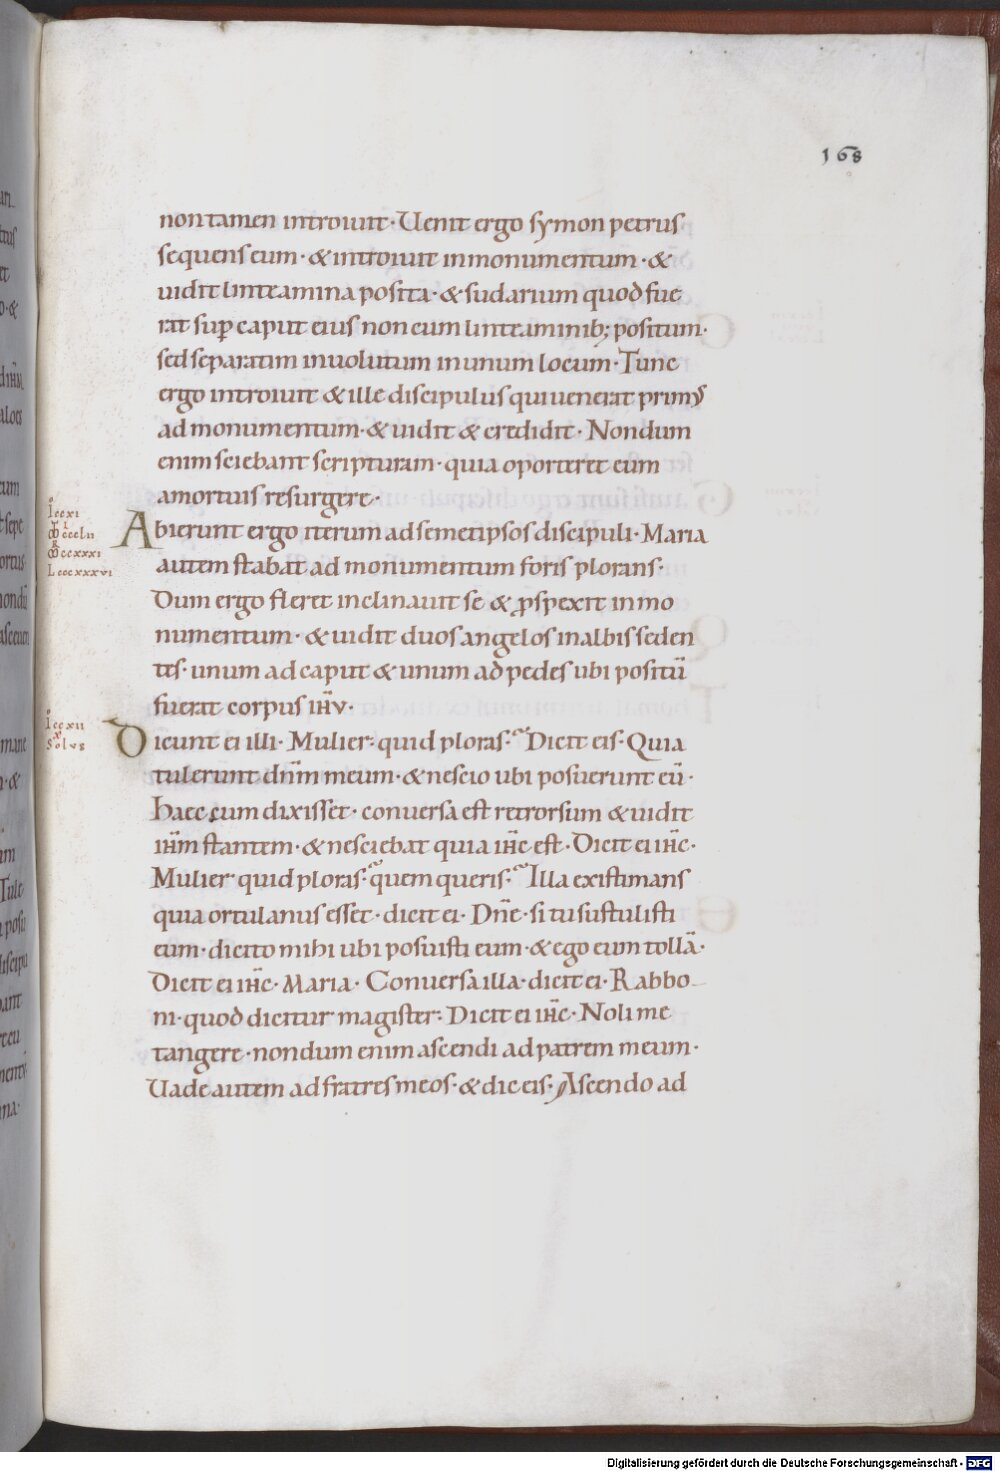 168
non tamen introiuit · Uenit ergo symon petrus
sequens eum · & introiuit in monumentum · &
uidit linteamina posita · & sudarium quod fue
rat sup̄ caput eius non cum linteaminib; positum ·
sed separatim inuolutum in unum locum · Tunc
ergo introiuit & ille discipulus qui uenerat primus
ad monumentum · & uidit & credidit · Nondum
enim sciebant scripturam · quia oporteret eum
a mortuis resurgere ·
Abierunt ergo iterum ad semetipsos discipuli · Maria
autem stabat ad monumentum foris plorans ·
Dum ergo fleret inclinauit se & ꝓspexit in mo
numentum · & uidit duos angelos in albis seden
tes · unum ad caput & unum ad pedes ubi positū
fuerat corpus ih̄u ·
Dicunt ei illi · Mulier · quid ploras · Dicit eis · Quia
tulerunt dn̄m meum · & nescio ubi posuerunt eū ·
Haec cum dixisset · conuersa est retrorsum & uidit
ih̄m stantem · & nesciebat quia ih̄c est · Dicit ei ih̄c ·
Mulier quid ploras · quem queris · Illa existimans
quia ortulanus esset · dicit ei · Dn̄e · si tu sustulisti
eum · dicito mihi ubi posuisti eum · & ego eum tollā ·
Dicit ei ih̄c · Maria · Conuersa illa · dicit ei · Rabbo
ni · quod dicitur magister · Dicit ei ih̄c · Noli me
tangere · nondum enim ascendi ad patrem meum ·
Uade autem ad fratres meos · & dic eis · Ascendo ad
I ccxi
M ccclii
R ccxxxi
L cccxxxvi
I ccxii
X
Solus
Digitalisierung gefördert durch die Deutsche Forschungsgemeinschaft - DFG